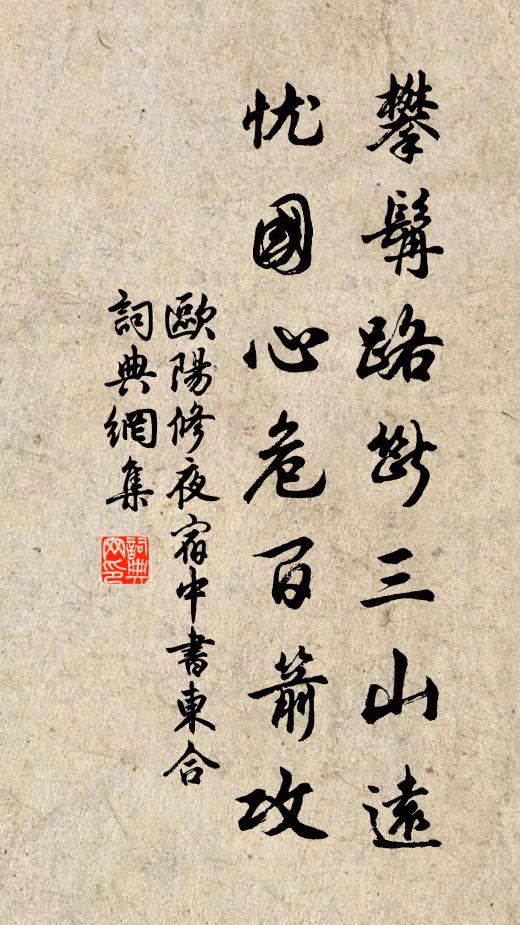 攀髯路斷三山遠
忧國心危百箭攻
歐陽修夜宿中書東合
詞典網集
詞典网印